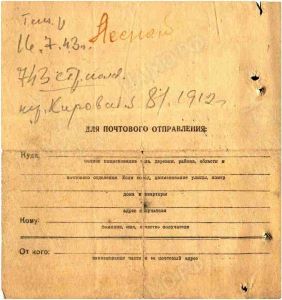 16.7.43г.
743 стр. полк.
ул. Кировская 81, 1912г.
ДЛЯ ПОЧТОВОГО ОТПРАВЛЕНИЯ:
Куда
полное наименование села, деревни, района, области и
почтового отделения Если город, наименование улицы, номер
дома и квартиры
адрес получателя
Кому:
фамилия, имя, отчество получателя
От кого:
наименование части и ее почтовый адрес